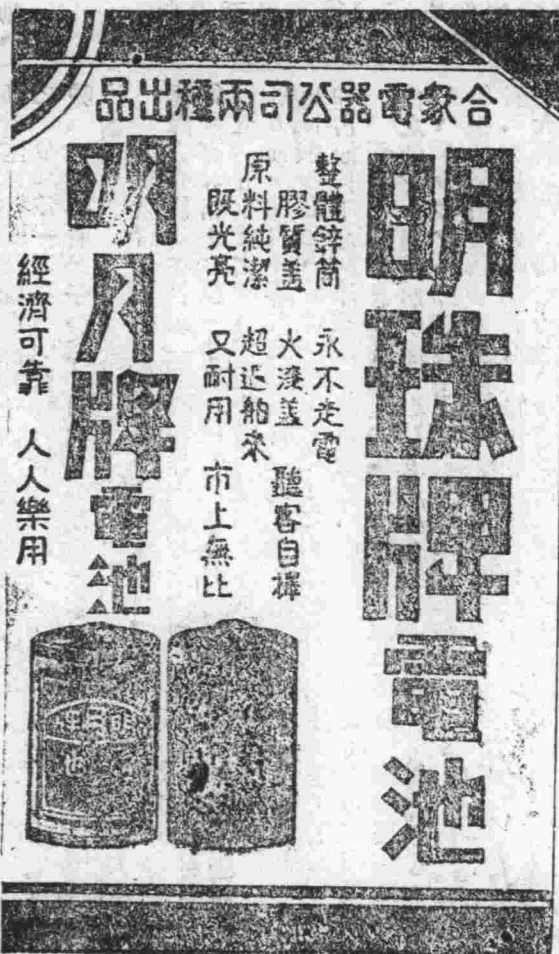 合衆電器公司兩種出品
明珠牌電池
整體鋅筒 永不走電
膠質蓋 火漆蓋 聽客自擇
原料純潔 超過舶來
既光亮 又耐用 市上無比
明月牌電池
經濟可靠 人人樂用
明月牌